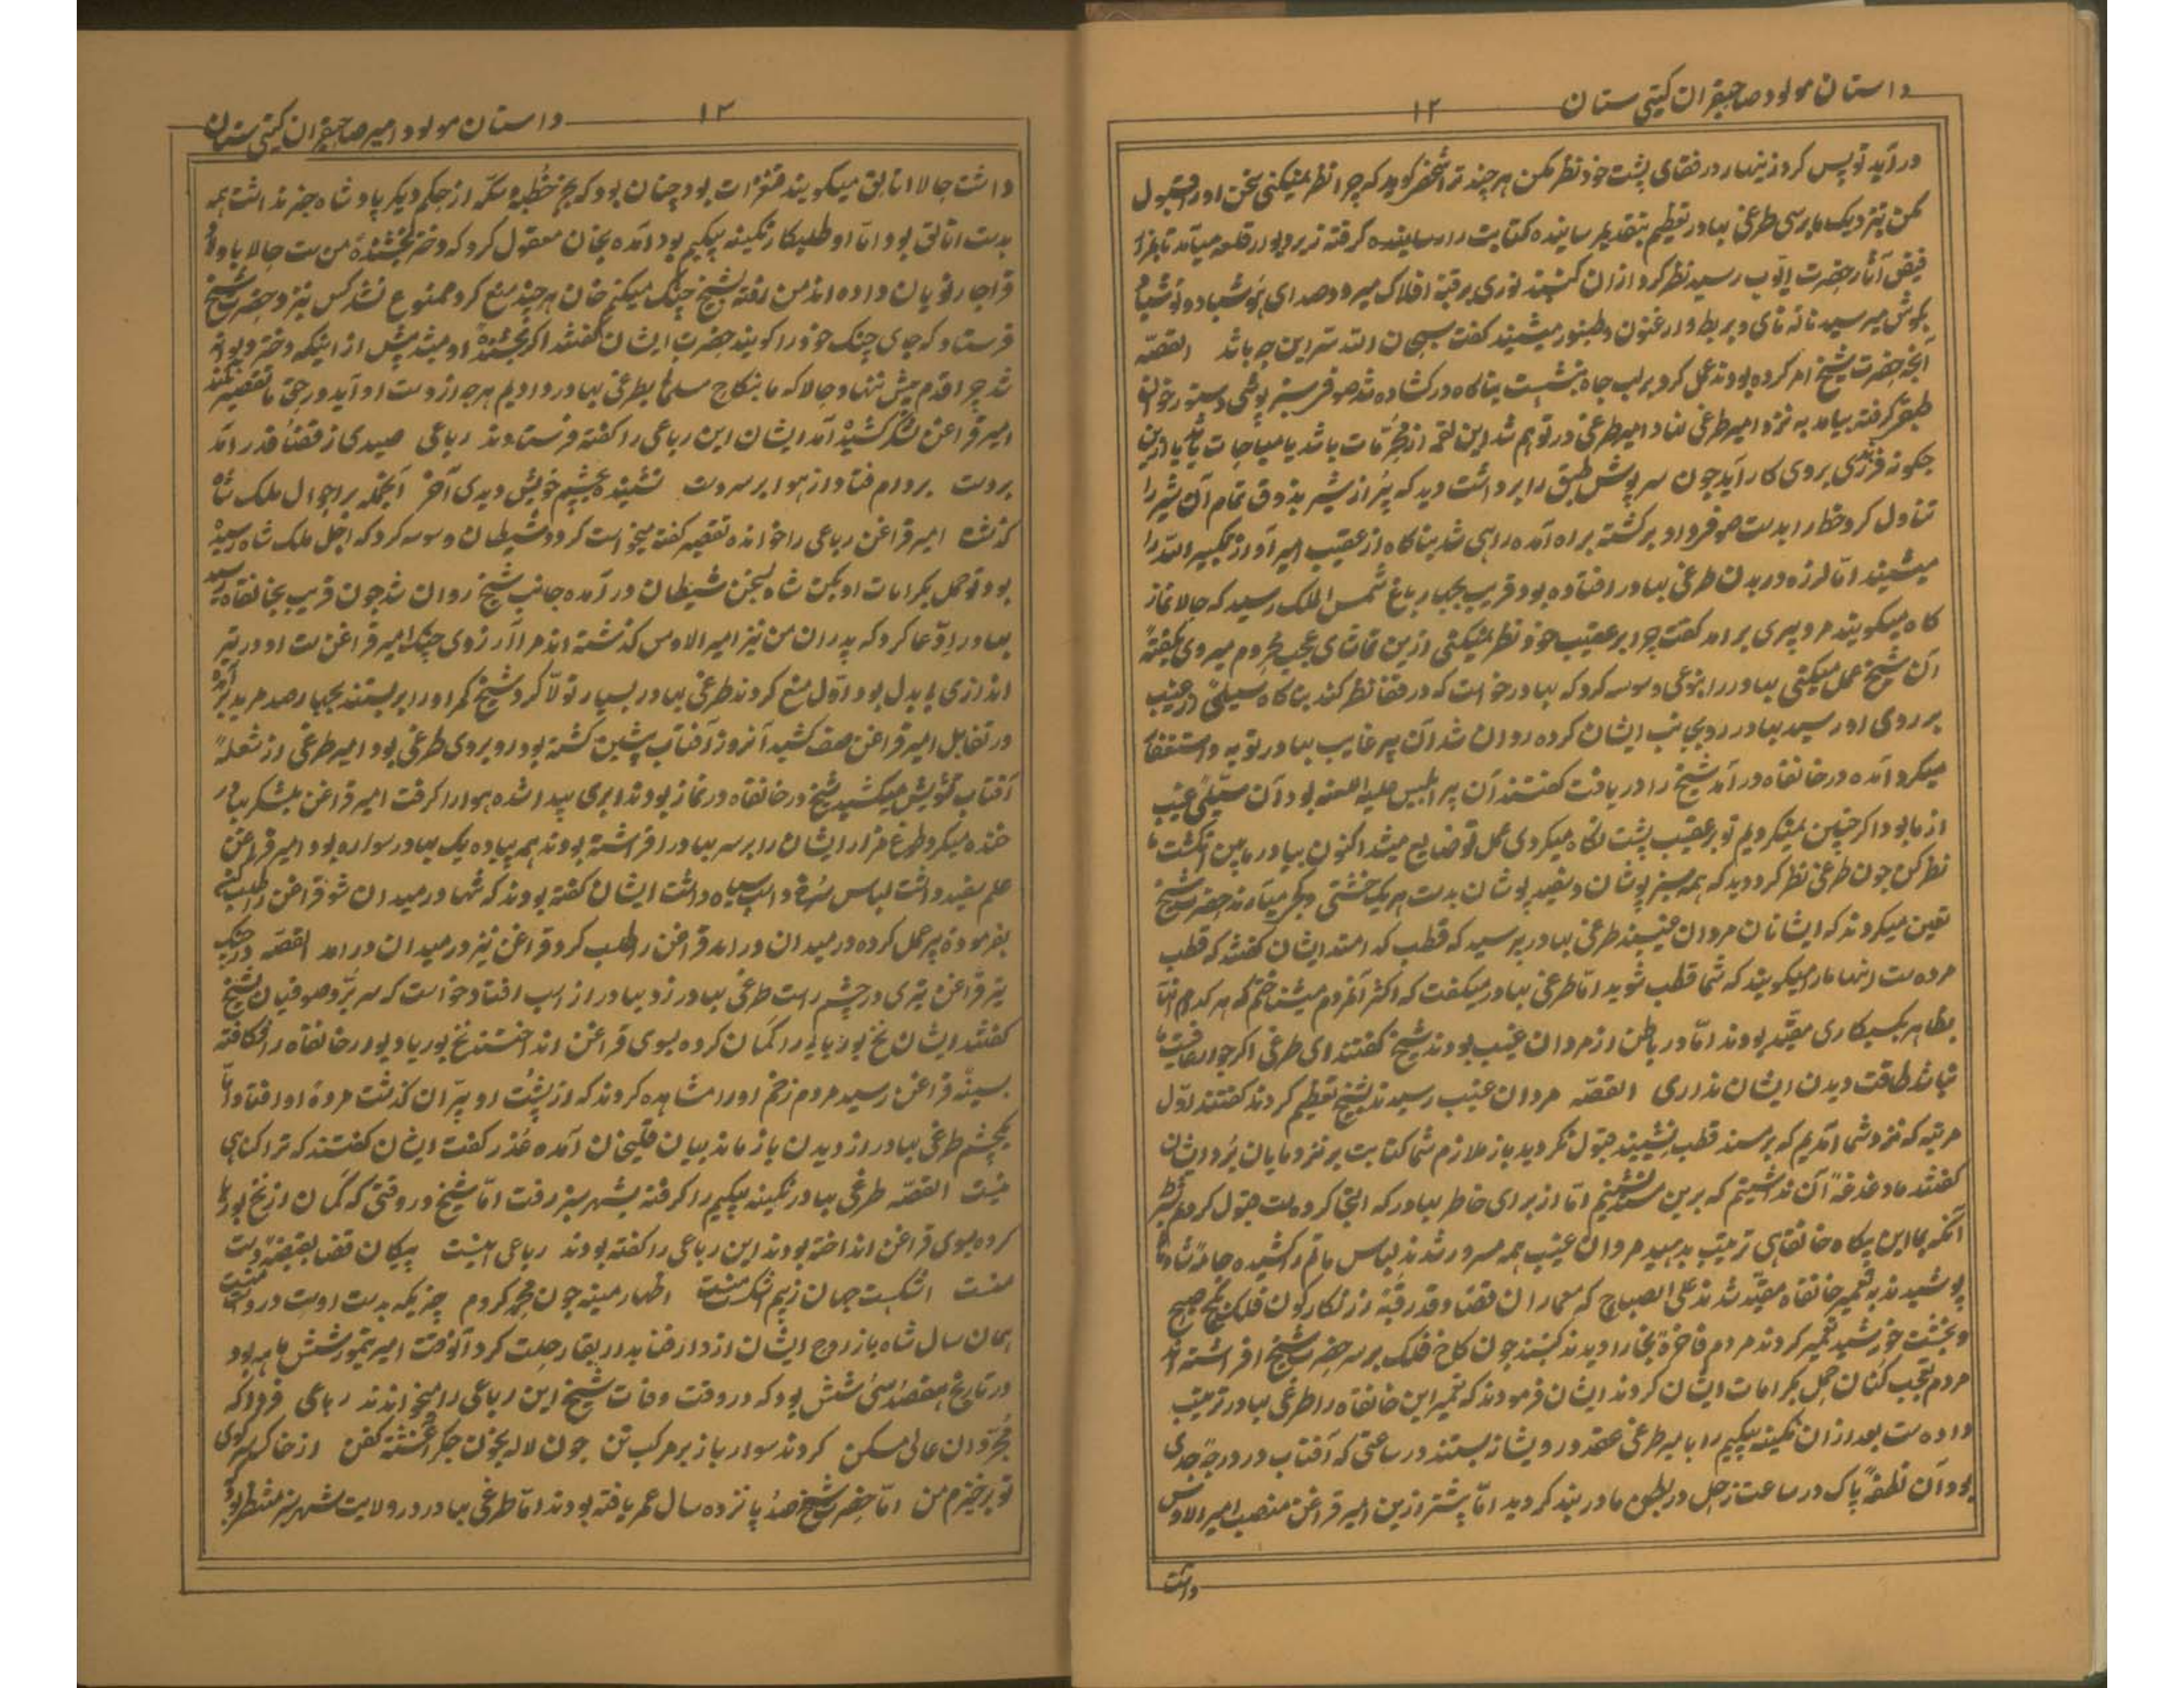 داستان مولود صاحبقران گیتی ستان
۱۲
در آید تو پس کرد زینهار در قفای پشت خود نظر مکن هر چند ترا شخص گوید که چرا نظر نمیکنی سخن او را قبول
مکن نزدیک ما برسی طرغی بهادر تعظیم بتقدیم رسانیده کتابت را رسانیده گرفته زیر و بود در قلعه میآمد تا بمزار
فیض آثار حضرت ایوب رسید نظر کرد از ان گنبد نوری بر قبۀ افلاک میرود صدای
بگوش میرسید نالۀ نای و بربط و ارغنون و طنبور میشنید گفت سبحان الله سر این چه باشد القصه
آنچه حضرت شیخ امر کرده بودند عمل کرد بر لب چاه بنشست بناگاه در گشاده شد صوفی سبز پوشی دستور خوان
طبق گرفته بیامد به نزد امیر طرغی نهاد امیر طرغی در توهم شد این لقمه از محرمات باشد یا مباحات
چگونه فرزندی بروی کار آید چون سرپوش طبق را برداشت دید که پر از شیر بذوق تمام آن شیر را
تناول کرد و خط را بدست صوفی داد برگشته براه آمده راهی شد بناگاه از عقیب امیر آواز تکبیر الله را
میشنید اما لرزه در بدن طرغی بهادر افتاده بود قریب بچهار باغ شمس الملک رسید که حالا نماز
گاه میگویند مرد پیری بر آمد گفت چرا بر عقیب خود نظر نمیکنی ازین تماشای عجب محروم میروی بگفتۀ
آن شیخ عمل میکنی بهادر را بنوعی وسوسه کرد که بهادر خواست که در قفا نظر کند بناگاه سیلئی از غیب
بر روی او رسید بهادر رو بجانب ایشان کرده روان شد آن پیر غایب بهادر توبه و استغفار
میکرد آمده در خانقاه در آمد شیخ را دریافت گفتند آن پیر ابلیس علیه اللعنه بود آن سیلئ غیب
از ما بود اگر چنین نمیکردیم تو بر عقیب پشت نگاه میکردی عمل تو ضایع میشد اکنون بهادر مابین انگشت ما
نظر کن چون طرغی نظر کرد دید که همه سبز پوشان و سفید پوشان بدست هر یک خشتی و میآرند حضرت شیخ
تعین میکردند که ایشانان مردان غیبند طرغی بهادر پرسید که قطب کدامند ایشان گفتند که قطب
مرده ست اینها مارا میگویند که شما قطب شوید اما طرغی بهادر میگفت که اکثر آنمردم میشناختم که هر کدام آنها
بظاهر بکسبکاری مقید بودند اما در باطن از مردان غیب بودند شیخ گفتند ای طرغی اگر جوار عافیت ما
نباشد طاقت دیدن ایشان نداری القصه مردان غیب رسیدند شیخ تعظیم کردند گفتند اول
مرتبه که نزد شما آمدیم که بر مسند قطب نشینید قبول نکردید باز ملازم شما کتابت بر نزد مایان برد ایشان
گفتند ما دغدغۀ آن نداشتیم که برین مسند نشینیم اما از برای خاطر بهادر که التجا کرده ست قبول کردیم بشرط
آنکه بما این پگاه خانقاهی ترتیب بدهید مردان غیب همه مسرور شدند لباس ماتم را کشیده جامۀ شادمانی
پوشیدند به تعمیر خانقاه مقید شدند علی الصباح که معماران قضا و قدر قبۀ زرنگار گون فلک
و بخشت خورشید تعمیر کردند مردم فاخرۀ بخارا دیدند گنبد چون کاخ فلک بر سر حضرت شیخ افراشته اند
مردم تعجب کنان حمل بکرامات ایشان کردند ایشان فرمودند که تعمیر این خانقاه را طرغی بهادر ترتیب
داده ست بعد از ان نگینه بیکیم را بامیر طرغی عقد درویشانه بستند در ساعتی که آفتاب در درجۀ جدی
بود آن نطفۀ پاک در ساعت زحل در بطون مادر بند گردید اما پیشتر ازین امیر قزاغن منصب امیر الاوس
داشت
داستان مولود امیر صاحبقران گیتی ستان
۱۳
داشت حالا اتالیق میگویند بود چنان بود که بجز خطبه و سکه از حکم دیگر پادشاه خبر نداشت همه
بدست اتالیق بود اما او طلبکار نگینه بیکیم بود آمده بخان معقول کرد که دختر بخشندۀ من ست حالا
قراجار نویان داده اند من رفته بشیخ جنگ میکنم خان هر چند منع کرد ممنوع نشد کس نیز و حضرت شیخ
فرستاد که جای جنگ خود را گویند حضرت ایشان گفتند اگر بخشندۀ او میشد پیش از اینکه دختر دیوانه
شد چرا قدم پیش ننهاد حالا که ما بنکاح مسلمانی بطرغی بهادر دادیم هر چه از دست او آید در حق ما تقصیر نکند
امیر قزاغن لشکر کشیده آمد ایشان این رباعی را گفته فرستادند رباعی صیدی ز قضا و قدر آمد
بردست بر دام فتاد از هوا بر سر دست ننشنیده بچشم خویش دیدی آخر آنچه بر احوال ملک شاه
گذشت امیر قزاغن رباعی را خوانده تقصیر گفته میخواست گردد شیطان وسوسه کرد که اجل ملک شاه رسیده
بود تو حمل بکرامات او مکن شاه بسخن شیطان در آمده جانب شیخ روان شد چون قریب بخانقاه رسید
بهادر ادعا کرد که پدران من نیز امیر الاوس گذشته اند مرا آرزوی جنگ امیر قزاغن ست او در تیر
اندازی بی بدل بود اول منع کردند طرغی بهادر بسیار تولا کرد شیخ کمر او را بر بستند بچهار صد مرید بر آمده
در تقابل امیر قزاغن صف کشید آنروز آفتاب پیشین گشته بود رو بروی طرغی بود امیر طرغی از شعلۀ
آفتاب تشویش میکشید شیخ در خانقاه در نماز بودند ابری پیدا شده هوا را گرفت امیر قزاغن بلشکر بهادر
خنده میکرد طوغ مزار ایشان را بر سر بهادر افراشته بودند همه پیاده یک بهادر سواره بود امیر قزاغن
علم سفید داشت لباس سرخ و اسب سیاه داشت ایشان گفته بودند که تنها در میدان شو قزاغن را طلب کن
بفرمودۀ پیر عمل کرده در میدان در آمد قزاغن را طلب کرد قزاغن نیز در میدان در آمد القصه در جنگ
تیر قزاغن تیری در چشم راست طرغی بهادر زد بهادر از اسب افتاد خواست که سر برد صوفیان بشیخ
گفتند ایشان نخ بوریا را کمان کرده بسوی قزاغن انداختند نخ بوریا دیوار خانقاه را شکافته
بسینۀ قزاغن رسید مردم زخم او را مشاهده کردند که از پشت او پران گذشت مردۀ او افتاد اما
یکچشم طرغی بهادر از دیدن باز ماند بیان قلیخان آمده عذر گفت ایشان گفتند که ترا گناهی
نیست القصه طرغی بهادر نگینه بیکیم را گرفته بشهر سبز رفت اما شیخ در وقتی که کمان از نخ بوریا
کرده بسوی قزاغن انداخته بودند این رباعی را گفته بودند رباعی اینست پیکان قضا بقبضۀ دست
منست اشکست جهان زیم اشکست منست اظهار مینه چون محمد کردم چیزیکه بدست اوست در دست منست
همان سال شهباز روح ایشان از دار فنا بدار بقا رحلت کرد آنوقت امیر تیمور شش ماهه بود
در تاریخ هفتصد سی شش بود که در وقت وفات شیخ این رباعی را میخواندند رباعی فردا که
مجردان عالی مسکن گردند سوار باز بر مرکب تن چون لاله بخون جگر آغشته کفن از خاک سر کوی
تو برخیزم من اما حضرت شیخ صد پانزده سال عمر یافته بودند اما طرغی بهادر در ولایت شهر سبز منتظر بود